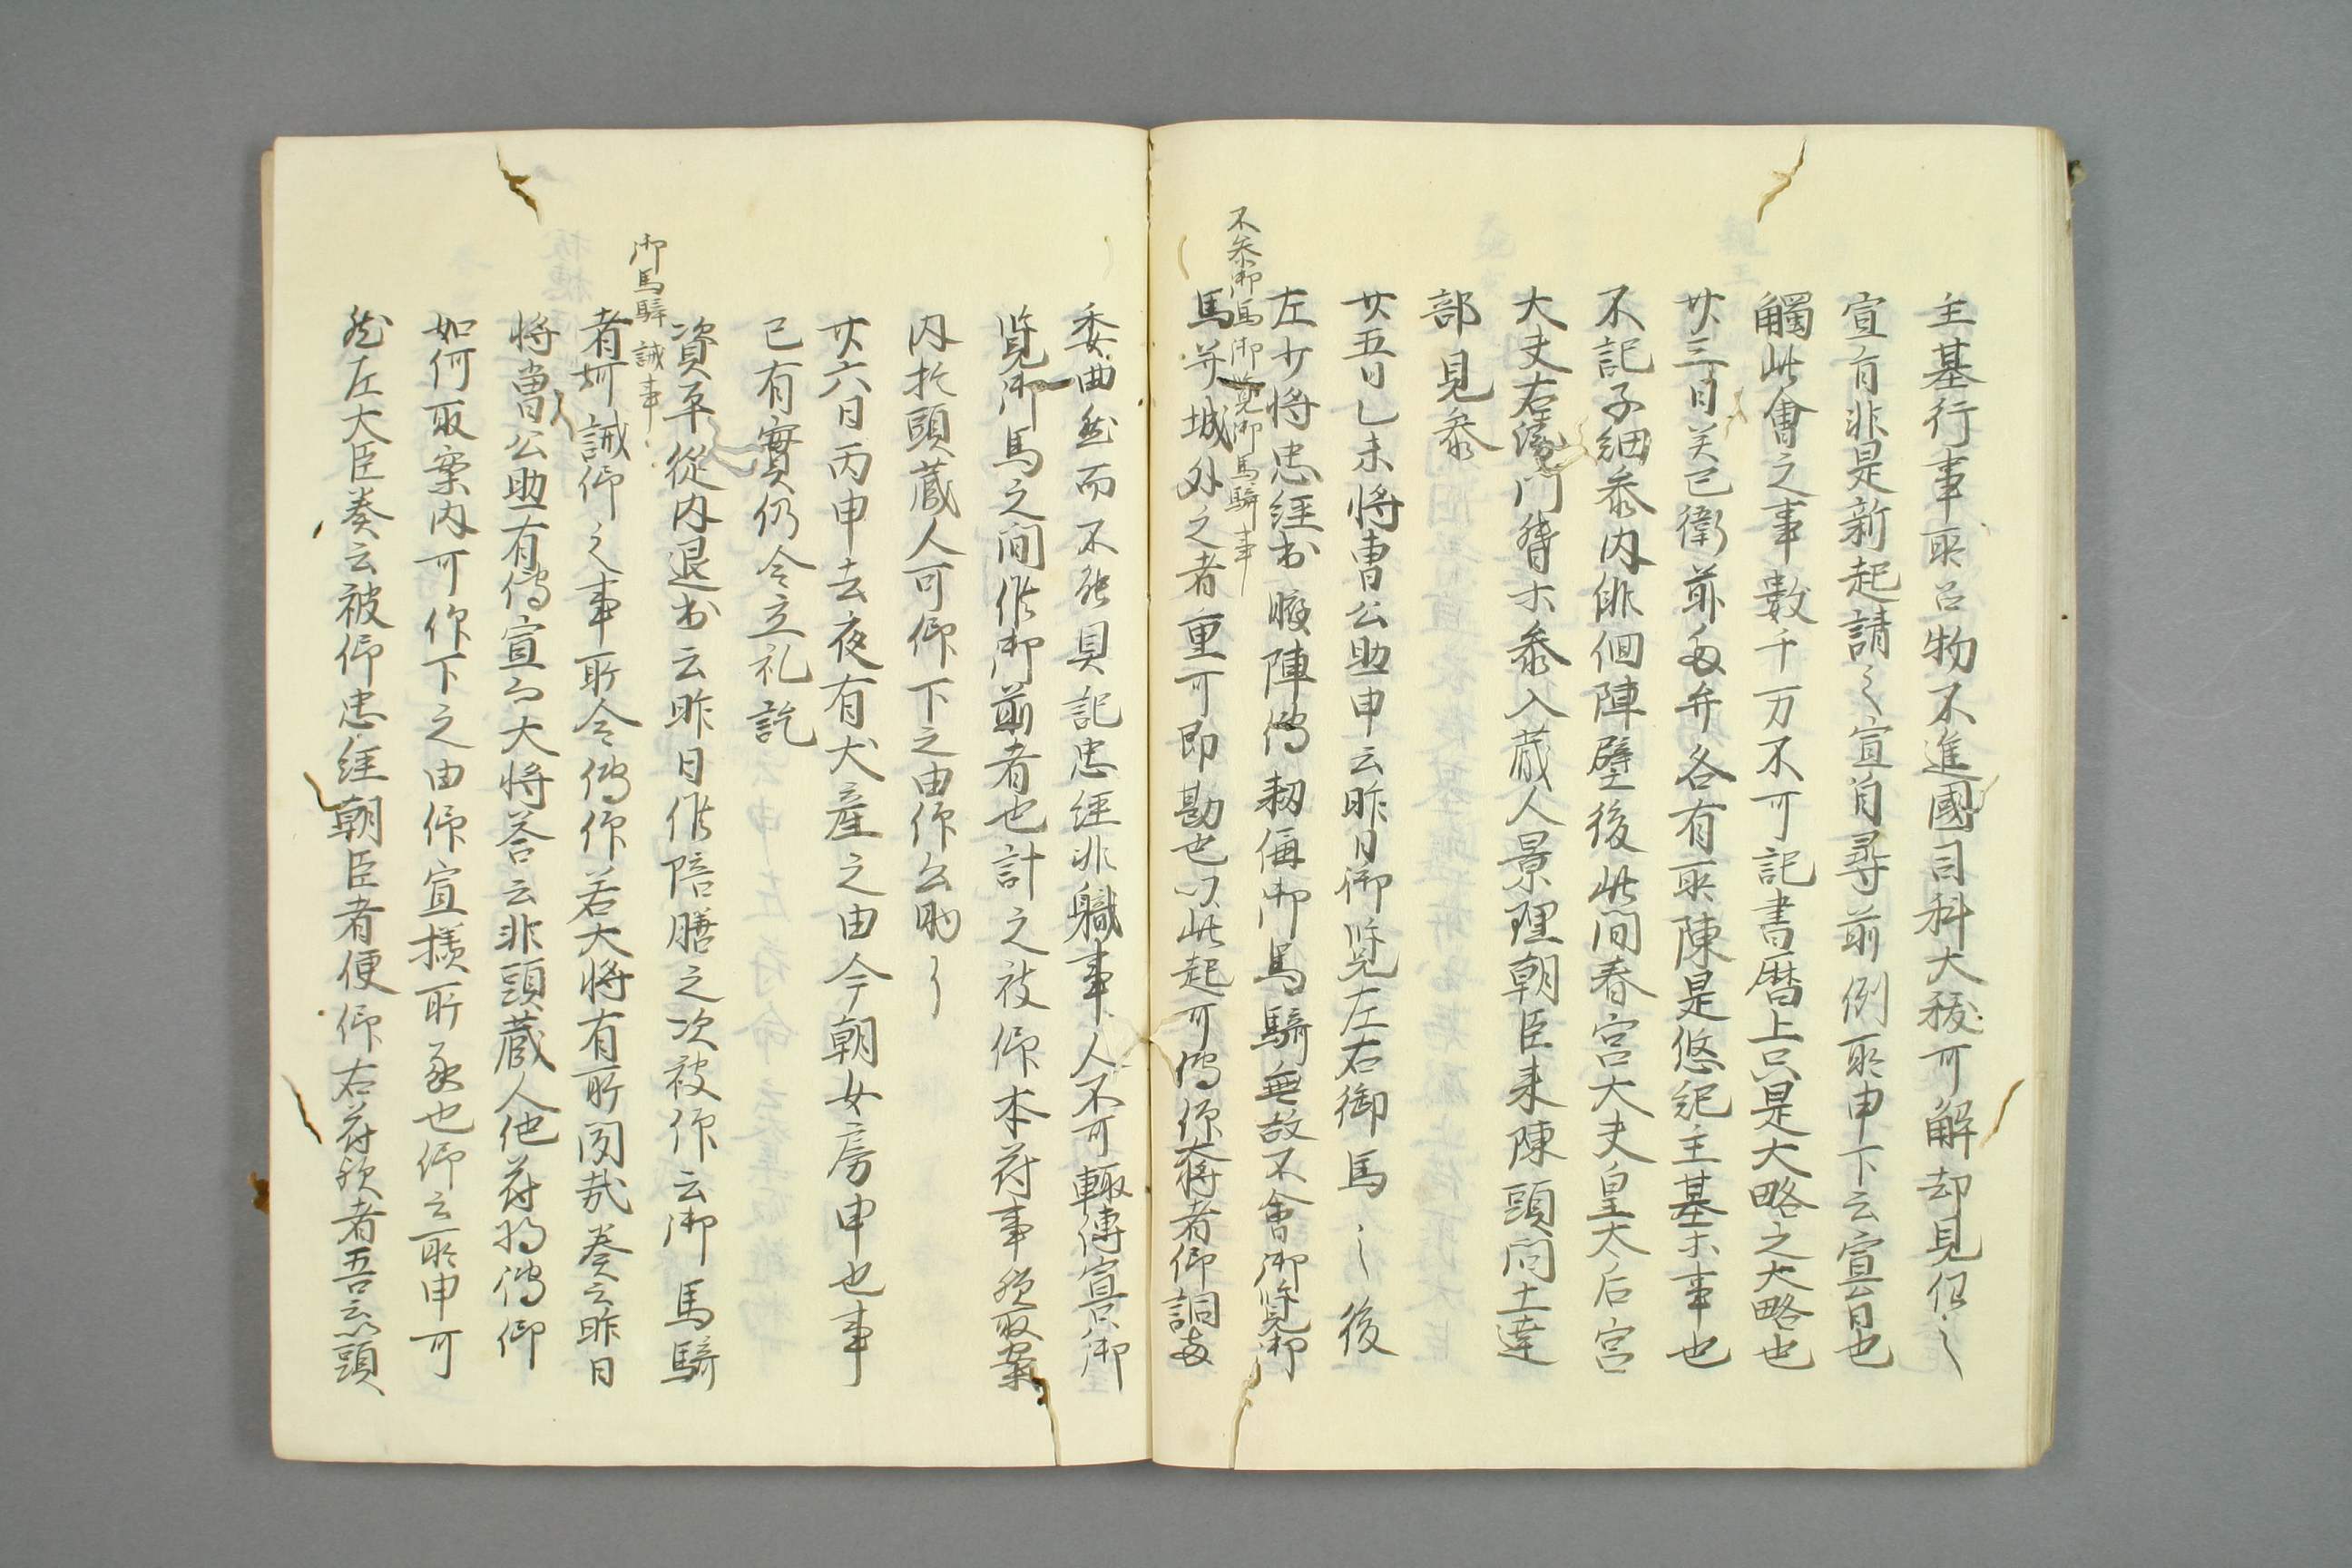 主基行事所召物不進國司科大祓可解却見任之〻
宣旨非是新起請之〻宣旨尋前例所申下云宣旨也
觸此會之事數千万不可記書暦上只是大略之大略也
廿三日癸巳衛前弁各有所陳是悠紀主基木事也
不記子細參内俳佪陣壁後此間春宮大夫皇太后宮
大夫右衛門督木參入蔵人景理朝臣来陳頭問土達
部見參
廿五日乙未將曹公助申云昨日御覧左右御馬〻後
不參御馬御覧御馬騎事
左少將忠経出腋陣傳勅偁御馬騎無故不會御覧御
馬并城外之者重可即勘也以此起可傳仰大將者仰詞
委曲然而不能具記忠経非職事人不可輙傳宣御
覧御馬之間候御前者也計之被仰本府事欤取案
内於頭蔵人可仰下之由仰公助了
廿六日丙申去夜有犬産之由今朝女房申也事
已有實仍令立札訖
資平從内退出云昨日候陪膳之次被仰云御馬騎
御馬騎誡事
者可誡仰之事所令傳仰若大將有所聞哉奏云昨日
將曹公助有傳宣云大將答云非頭蔵人他府將傳仰
如何取案内可仰下之由仰宣損所承也仰云所申可
然左大臣奏云被仰忠経朝臣者便仰右府欤者吾云頭